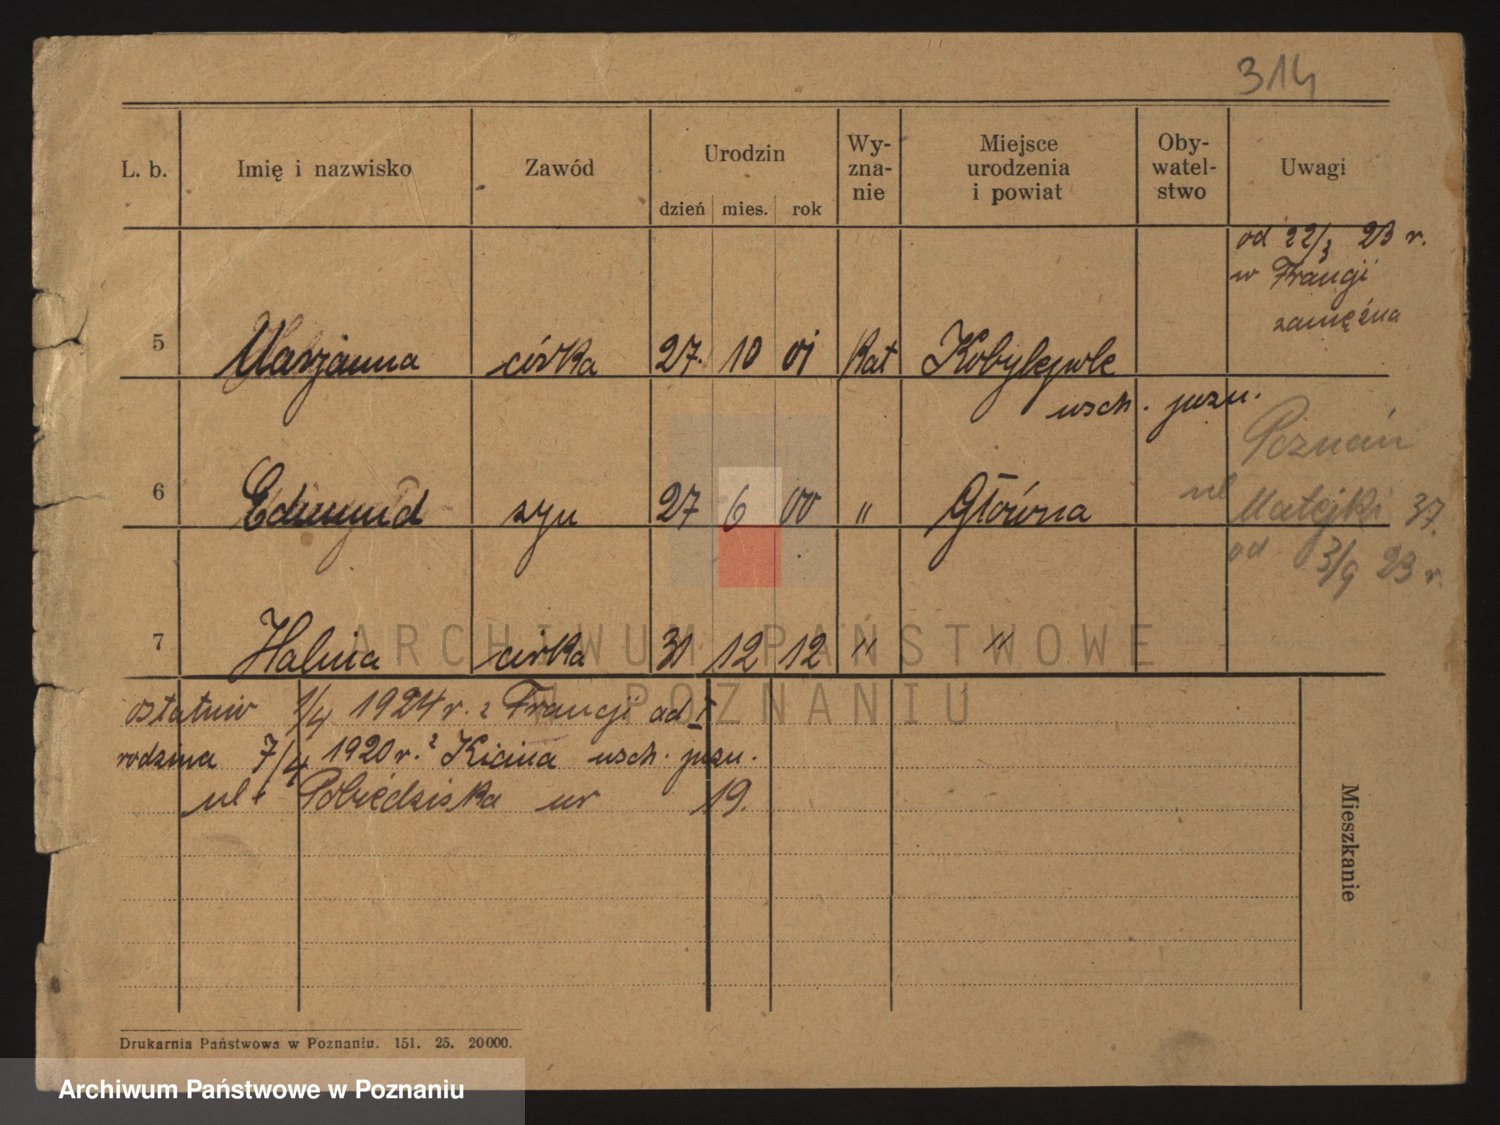 314
L. b. Imię i nazwisko Zawód Urodzin dzień mies. rok Wy-zna-nie Miejsce urodzenia i powiat Oby-watel-stwo Uwagi
od 22/3 23 r.
w Francji
zamężna
5 Marjanna córka 27. 10 01 kat Kobylepole
wsch. pozn.
Poznań
6 Edmund syn 27 6 00 " Główna
ul Matejki 37.
od 3/9 23 r.
7 Halina córka 31 12 12 " "
ARCHIWUM PAŃSTWOWE
W POZNANIU
ostatnio 1/4 1924 r. z Francji ad I
rodzina 7/4 1920 r. z Kicina wsch. pozn.
ul. Pobiedziska nr 19.
Mieszkanie
Drukarnia Państwowa w Poznaniu. 151. 25. 20000.
Archiwum Państwowe w Poznaniu